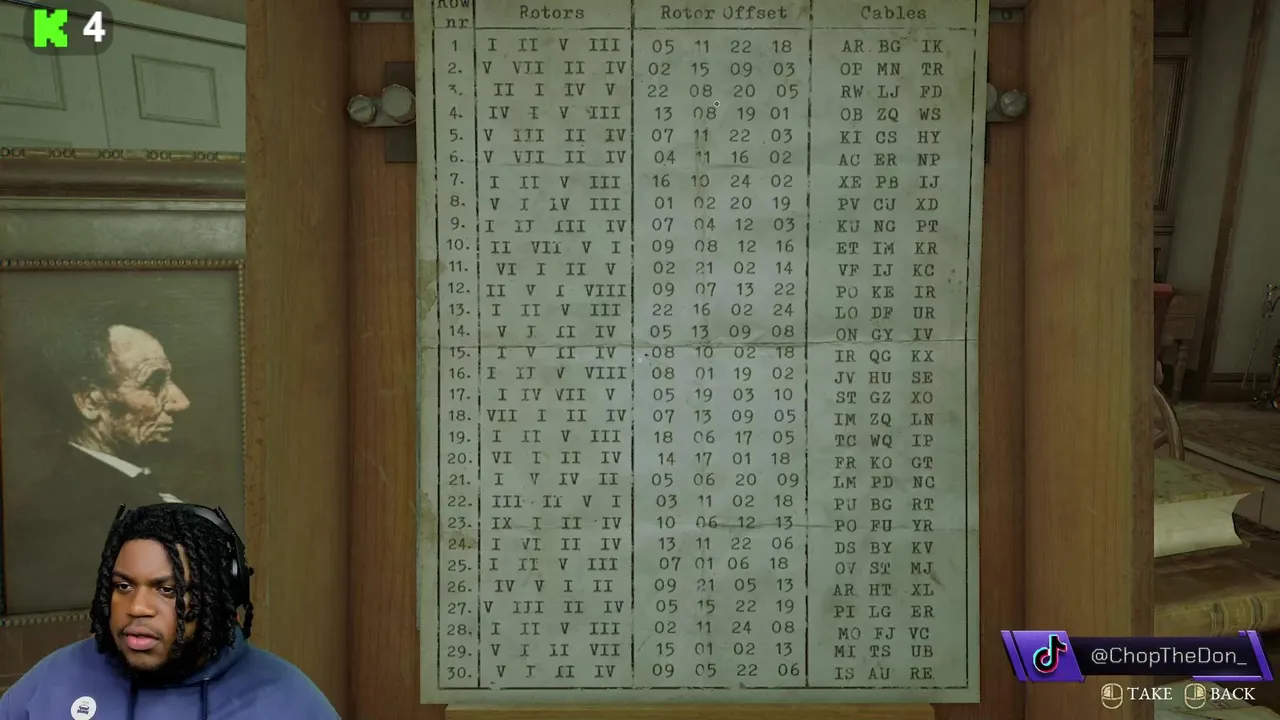 K 4
Row nr Rotors Rotor Offset Cables
1 I II V III 05 11 22 18 AR BG IK
2. V VII II IV 02 15 09 03 OP MN TR
3. II I IV V 22 08 20 05 RW LJ FD
4. IV I V III 13 08 19 01 OB ZQ WS
5. V III II IV 07 11 22 03 KI CS HY
6. V VII II IV 04 11 16 02 AC ER NP
7. I II V III 16 10 24 02 XE PB IJ
8. V I IV III 01 02 20 19 PV CU XD
9. I II III IV 07 04 12 03 KU NG PT
10. II VII V I 09 08 12 16 ET IM KR
11. VI I II V 02 21 02 14 VF IJ KC
12. II V I VIII 09 07 13 22 PO KE IR
13. I II V III 22 16 02 24 LO DF UR
14. V I II IV 05 13 09 08 ON GY IV
15. I V II IV 08 10 02 18 IR QG KX
16. I II V VIII 08 01 19 02 JV HU SE
17. I IV VII V 05 19 03 10 ST GZ XO
18. VII I II IV 07 13 09 05 IM ZQ LN
19. I II V III 18 06 17 05 TC WQ IP
20. VI I II IV 14 17 01 18 FR KO GT
21. I V IV II 05 06 20 09 LM PD NC
22. III II V I 03 11 02 18 PU BG RT
23. IX I II IV 10 06 12 13 PO FU YR
24. I VI II IV 13 11 22 06 DS BY KV
25. I II V III 07 01 06 18 OV ST MJ
26. IV V I II 09 21 05 13 AR HT XL
27. V III II IV 05 15 22 19 PI LG ER
28. I II V III 02 11 24 08 MO FJ VC
29. V I II VII 15 01 02 13 MI TS UB
30. V I II IV 09 05 22 06 IS AU RE
@ChopTheDon_
TAKE BACK